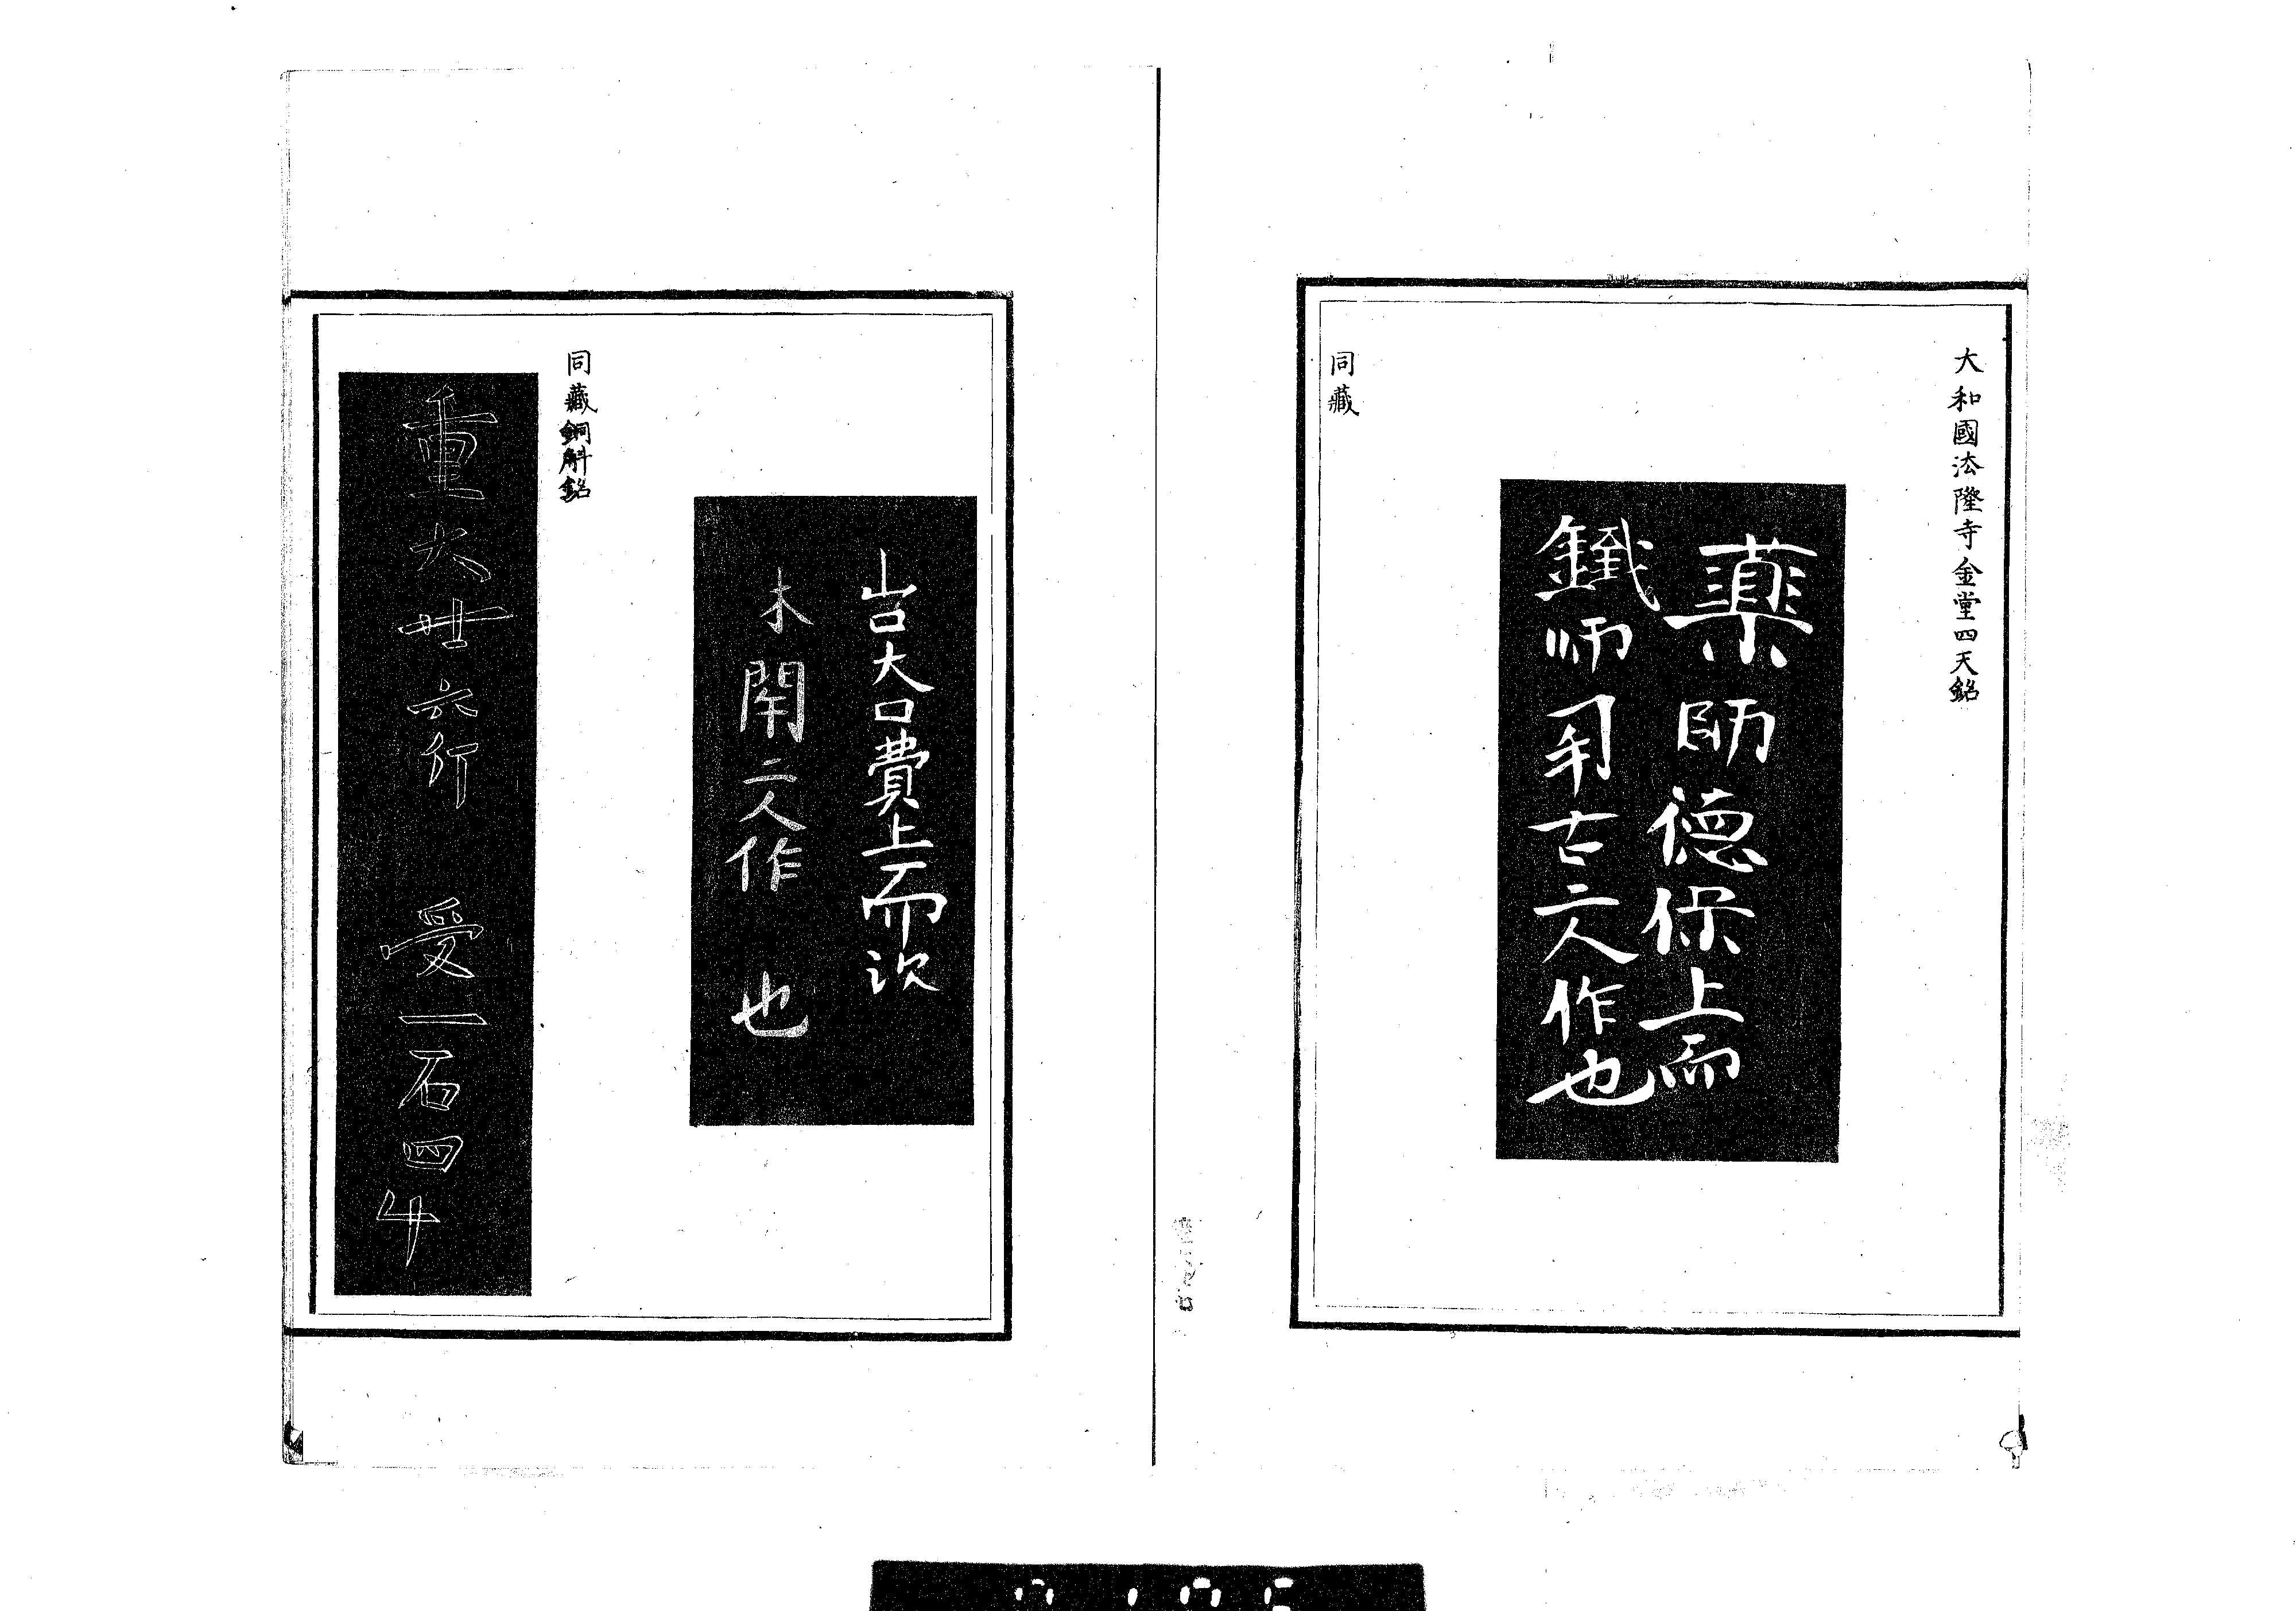 大和國法隆寺金堂四天銘
薬師德保上而
鐵師手古二人作也
同藏
山口大口費上而次
木閇二人作也
同藏銅斛銘
重大廿六斤 受一石四斗